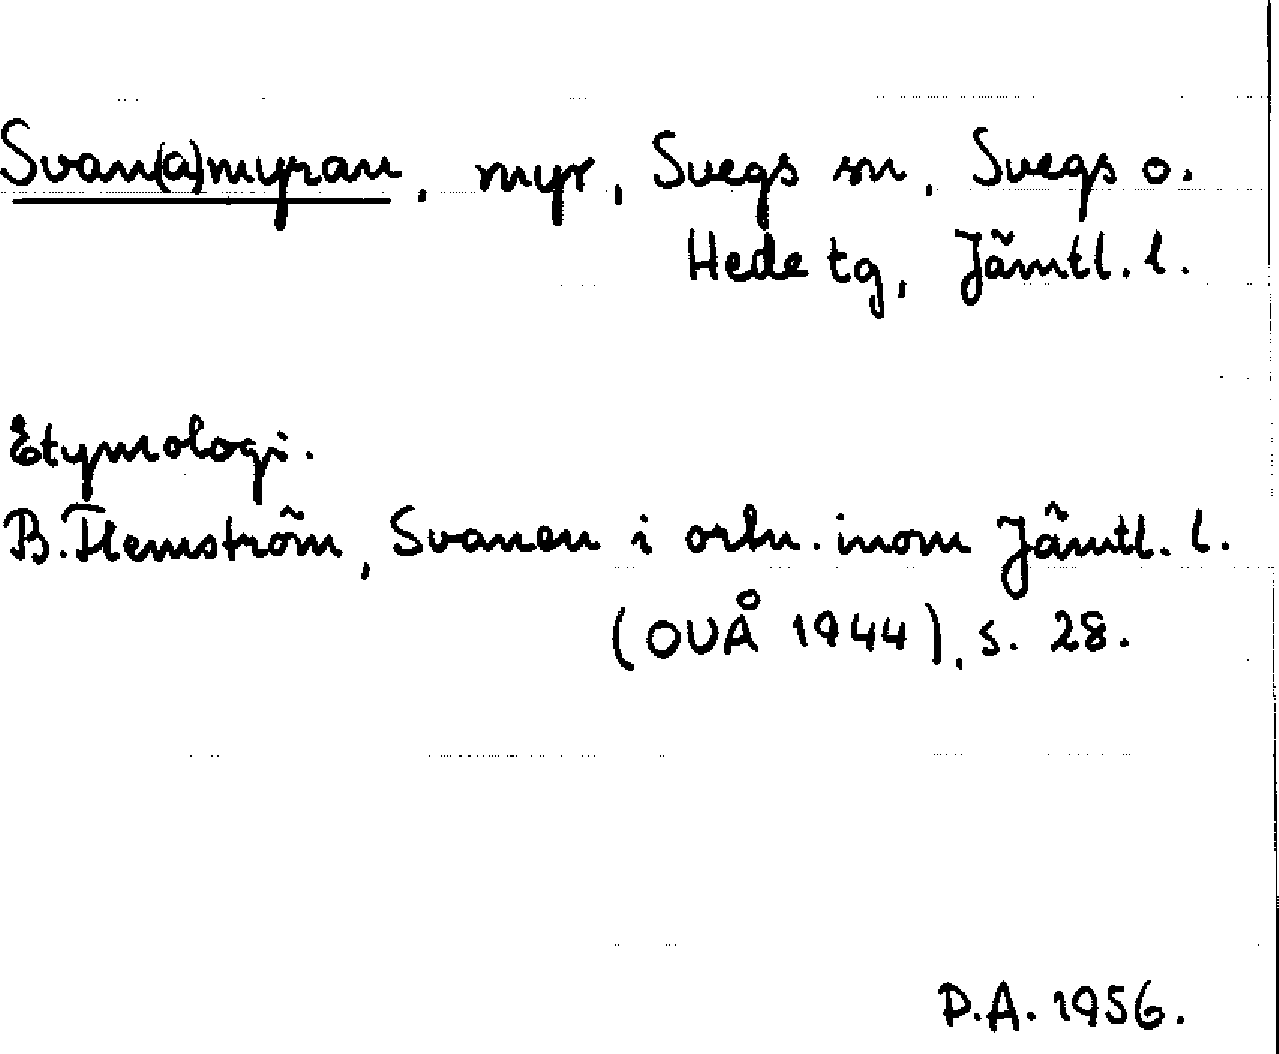 Svan(a)myran, myr, Svegs sn, Svegs o.
Hede tg, Jämtl. l.
Etymologi.
B. Flemström, Svanen i ortn. inom Jämtl. l.
(OUÅ 1944), s. 28.
P.A. 1956.